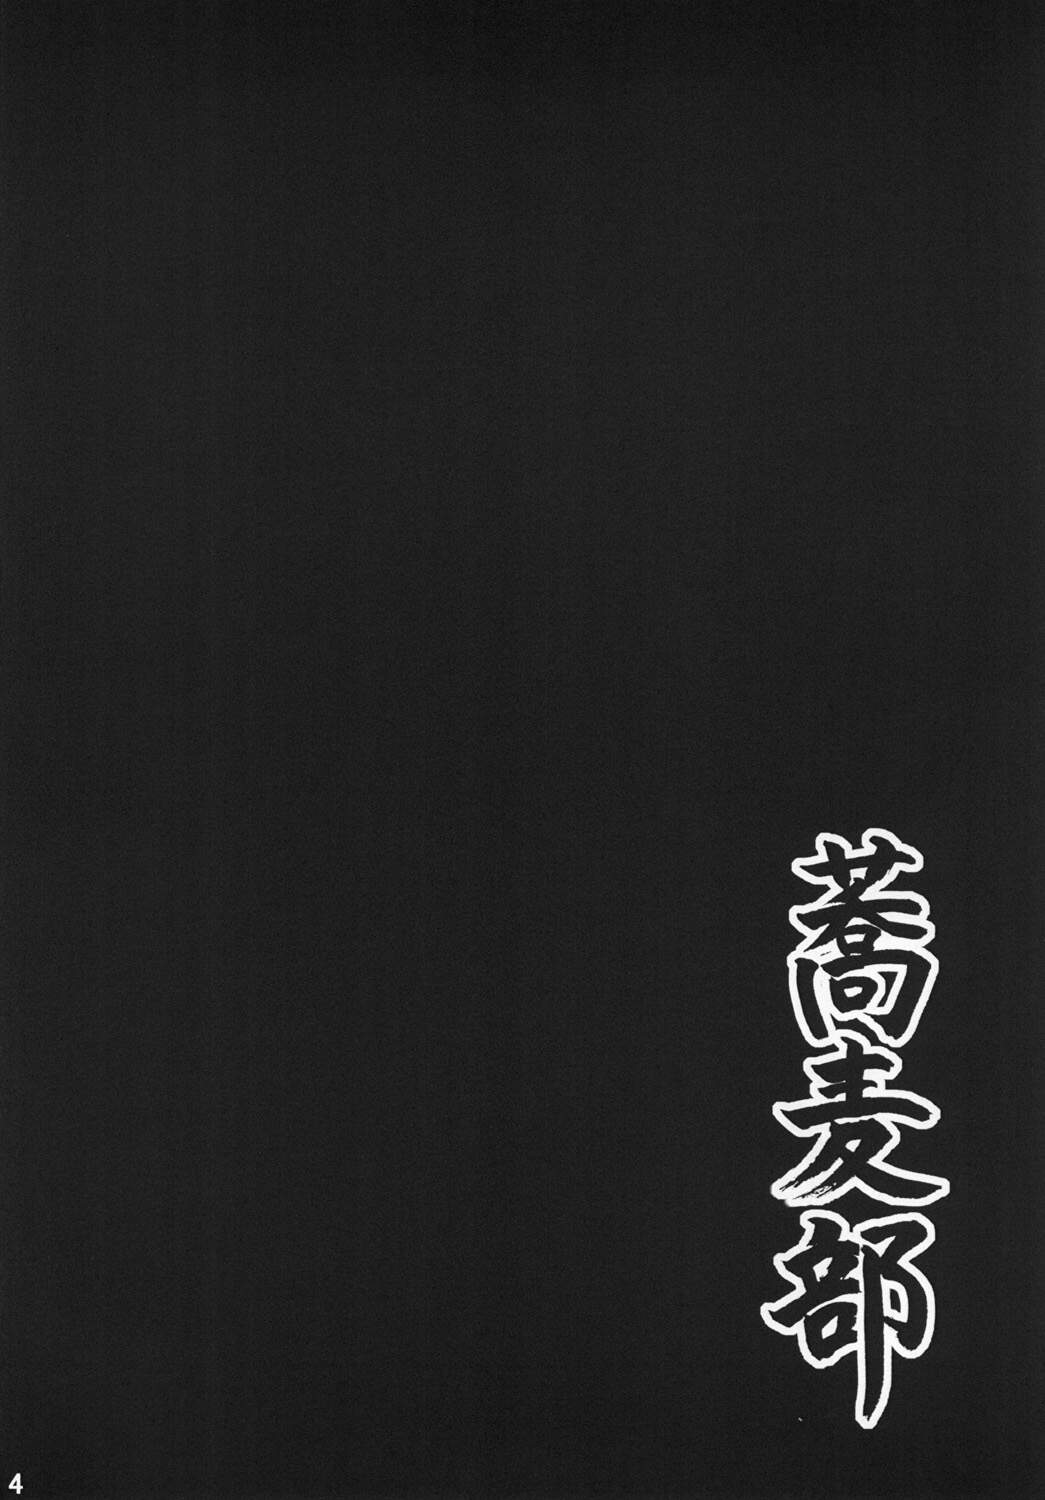 蕎麦部
4